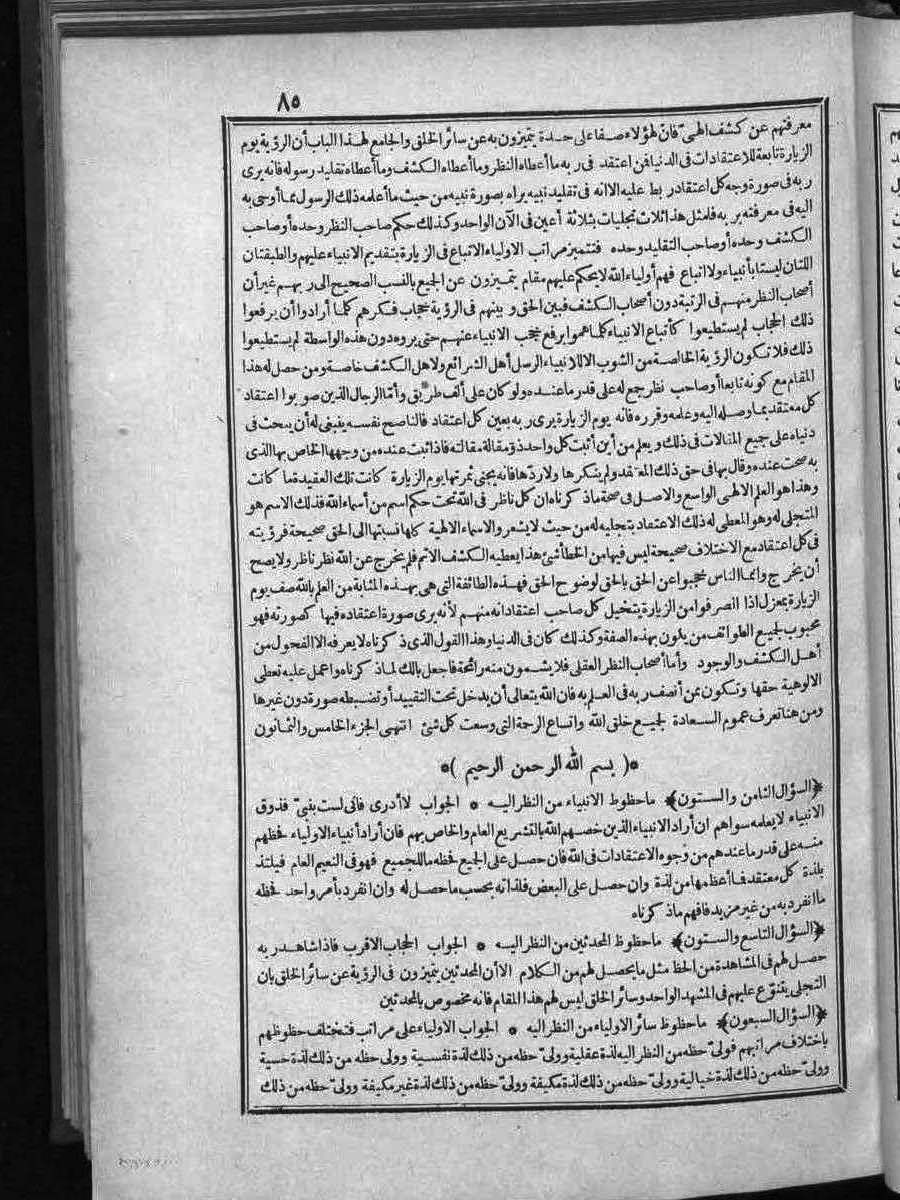 ٨٥
معرفتهم عن كشف الهى فان لهؤلاء صفا على حدة يتميزون به عن سائر الخلق والجامع لهذا الباب أن الرؤية يوم
الزيارة تابعة للاعتقادات فى الدنيا فمن اعتقد فى ربه ما أعطاه النظر وما أعطاه الكشف وما أعطاه تقليد رسوله فانه يرى
ربه فى صورة وجه كل اعتقاد ربط عليه الا انه فى تقليد نبيه يراه بصورة نبيه من حيث ما أعلمه ذلك الرسول بما أوحى به
اليه فى معرفته بربه فلمثل هذا ثلاث تجليات بثلاثة أعين فى الآن الواحد وكذلك حكم صاحب النظر وحده أو صاحب
الكشف وحده أو صاحب التقليد وحده فتتميز مراتب الاولياء الاتباع فى الزيارة بتقديم الانبياء عليهم والطبقتان
اللتان ليستا بأنبياء ولا اتباع فهم أولياء الله لا يحكم عليهم مقام يتميزون عن الجميع بالنسب الصحيح الى ربهم غير أن
أصحاب النظر منهم فى الرتبة دون أصحاب الكشف فبين الحق وبينهم فى الرؤية حجاب فكرهم كلما أرادوا أن يرفعوا
ذلك الحجاب لم يستطيعوا كأتباع الانبياء كلما هموا برفع حجب الانبياء عنهم حتى يروه دون هذه الواسطة لم يستطيعوا
ذلك فلا تكون الرؤية الخالصة من الشوب الا للانبياء الرسل أهل الشرائع ولاهل الكشف خاصة ومن حصل له هذا
المقام مع كونه تابعا أو صاحب نظر جمع له على قدر ما عنده ولو كان على ألف طريق وأما الرجال الذين صوبوا اعتقاد
كل معتقد بما وصله اليه وعلمه وقرره فانه يوم الزيارة يرى ربه بعين كل اعتقاد فالناصح نفسه ينبغى له أن يبحث فى
دنياه على جميع المقالات فى ذلك ويعلم من أين أثبت كل واحد ذو مقالة مقالته فاذا ثبت عنده من وجهها الخاص بها الذى
به صحت عنده وقال بها فى حق ذلك المعتقد ولم ينكرها ولا ردها فانه يجنى ثمرتها يوم الزيارة كانت تلك العقيدة ما كانت
وهذا هو العلم الالهى الواسع والاصل فى صحة ما ذكرناه ان كل ناظر فى الله تحت حكم اسم من أسماء الله فذلك الاسم هو
المتجلى له وهو المعطى له ذلك الاعتقاد بتجليه له من حيث لا يشعر والاسماء الالهية كلها نسبتها الى الحق صحيحة فرؤيته
فى كل اعتقاد مع الاختلاف صحيحة ليس فيها من الخطأ شئ هذا يعطيه الكشف الاتم فلم يخرج عن الله نظر ناظر ولا يصح
أن يخرج وانما الناس حجبوا عن الحق بالحق لوضوح الحق فهذه الطائفة التى هى بهذه المثابة من العلم بالله صف يوم
الزيارة بمعزل اذا انصرفوا من الزيارة يتخيل كل صاحب اعتقاد انه منهم لأنه يرى صورة اعتقاده فيها كصورته فهو
محبوب لجميع الطوائف من يكون بهذه الصفة وكذلك كان فى الدنيا وهذا القول الذى ذكرناه لا يعرفه الا الفحول من
أهل الكشف والوجود وأما أصحاب النظر العقلى فلا يشمون منه رائحة فاجعل بالك لما ذكرناه واعمل عليه تعطى
الالوهية حقها وتكون ممن أنصف ربه فى العلم به فان الله يتعالى أن يدخل تحت التقييد أو تضبطه صورة دون غيرها
ومن هنا تعرف عموم السعادة لجميع خلق الله واتساع الرحمة التى وسعت كل شئ انتهى الجزء الخامس والثمانون
*( بسم الله الرحمن الرحيم )*
﴿السؤال الثامن والستون﴾ ما حظوظ الانبياء من النظر اليه * الجواب لا أدرى فانى لست بنبى فذوق
الانبياء لا يعلمه سواهم ان أراد الانبياء الذين خصهم الله بالتشريع العام والخاص بهم فان أراد أنبياء الاولياء فحظهم
منه على قدر ما عندهم من وجوه الاعتقادات فى الله فان حصل على الجميع فحظه ما للجميع فهو فى النعيم العام فيلتذ
بلذة كل معتقد فما أعظمها من لذة وان حصل على البعض فلذاته بحسب ما حصل له وان انفرد بأمر واحد فحظه
ما انفرد به من غير مزيد فافهم ما ذكرناه
﴿السؤال التاسع والستون﴾ ما حظوظ المحدثين من النظر اليه * الجواب الحجاب الاقرب فاذا شاهد ربه
حصل لهم فى المشاهدة من الحظ مثل ما يحصل لهم من الكلام الا أن المحدثين يتميزون فى الرؤية عن سائر الخلق بان
التجلى يتنوع عليهم فى المشهد الواحد وسائر الخلق ليس لهم هذا المقام فانه مخصوص بالمحدثين
﴿السؤال السبعون﴾ ما حظوظ سائر الاولياء من النظر اليه * الجواب الاولياء على مراتب فتختلف حظوظهم
باختلاف مراتبهم فولى حظه من النظر اليه لذة عقلية وولى حظه من ذلك لذة نفسية وولى حظه من ذلك لذة حسية
وولى حظه من ذلك لذة خيالية وولى حظه من ذلك لذة مكيفة وولى حظه من ذلك لذة غير مكيفة وولى حظه من ذلك